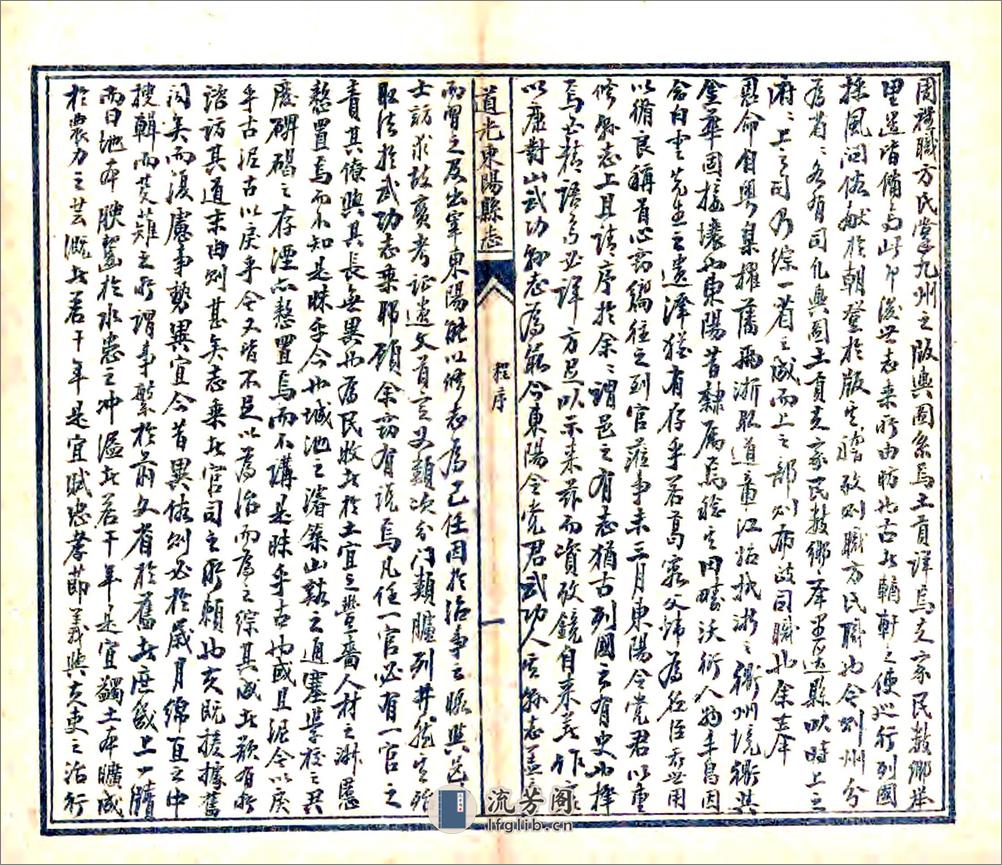 周禮職方氏掌九州之版輿圖系焉土貢詳焉夫家民數鄉舉
里選皆備焉此即後世志乘所由昉也古者輶軒之使巡行列國
採風問俗獻於朝登於版生齒攷則職方氏職也今則州分
爲省〻各有司凡輿圖土貢夫家民數鄉舉里選縣以時上之
府〻上之司乃綜一省之成而上之部則布政司職也余奉
恩命自粵臬擢藩兩浙取道章江抵於浙之衢州境衢與
金華固接壤而東陽昔隸屬焉稔其田疇沃衍人物丰昌因
念白雲先生之遺澤猶有存乎若葛父爲名臣用
以循良稱首心竊嚮往之到官蒞事未三月東陽令党君以重
修縣志上且請序於余〻謂邑之有志猶古列國之有史也擇
焉必精語焉必詳方足以示來茲而資攷鏡自來著作家
以康對山武功縣志爲最今東陽令党君武功人其縣志蓋
道光東陽縣志
程序
一
而習之及出宰東陽能以修志爲己任因於治事之暇與邑
士訪求故實考証遺文類次分門類臚列井然其殆
取法於武功志乘耶顧余竊有說焉凡任一官必有一官之
責其僚與其長無異而爲民牧者於土宜之豐嗇人材之淑慝
愸置焉而不知是昧乎今也城池之濬築山谿之通塞學校之興
廢碑碣之存湮愸置焉而不講是昧乎古也或且泥今以戾
乎古泥古以戾乎今又皆不足以爲治而爲之綜其成者欲有所
諮訪其道末由則甚矣志乘者官司之所賴也夫旣援據舊
聞矣而復慮事勢異宜今昔異俗則必於歲月綿亘之中
搜輯而芟薙之所謂事繁於前文省於舊者庶幾上一牘
而曰地本腴墾於水患之沖溢者若干年是宜蠲土本曠成
於農力之芸溉者若干年是宜賦忠孝節義與夫吏之治行
流芳阁
lfglib.cn